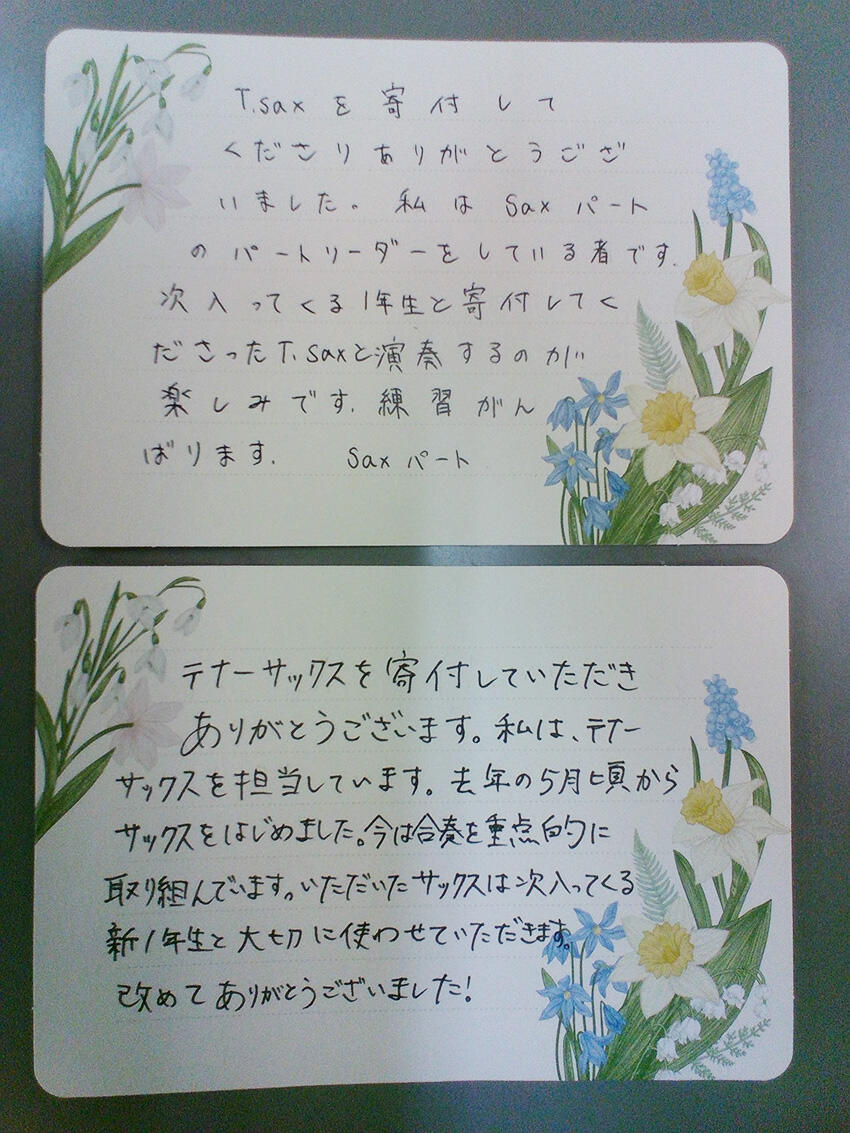 T.saxを寄付して
くださりありがとうござ
いました。私はSaxパート
のパートリーダーをしている者です.
次入ってくる1年生と寄付してく
ださったT.saxと演奏するのが
楽しみです.練習がん
ばります. Saxパート
テナーサックスを寄付していただき
ありがとうございます。私は、テナー
サックスを担当しています。去年の5月頃から
サックスをはじめました。今は合奏を重点的に
取り組んでいます。いただいたサックスは次入ってくる
新1年生と大切に使わせていただきます。
改めてありがとうございました!